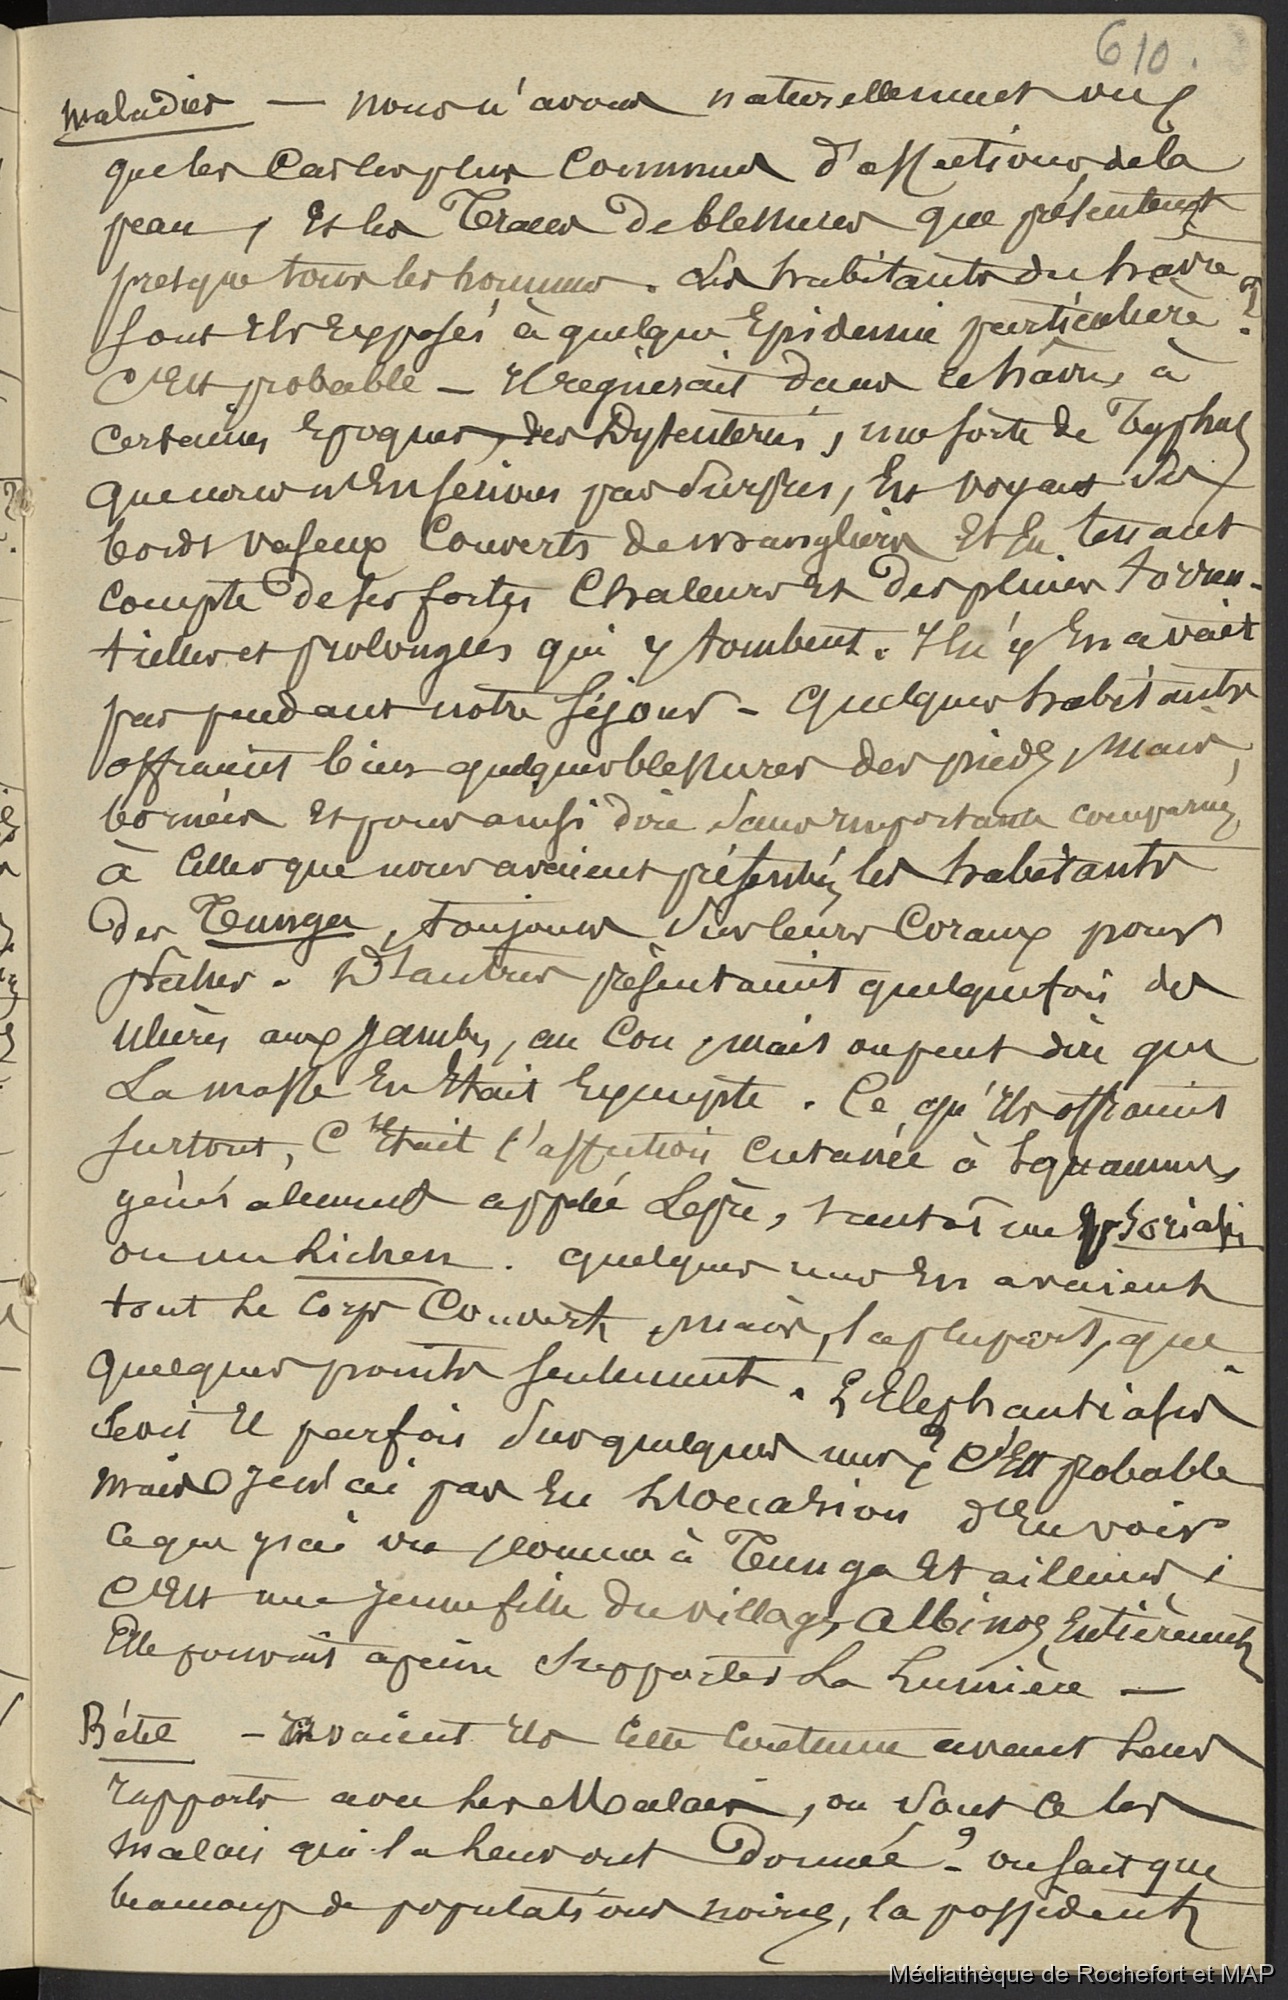 610.
Maladies — nous n'avons naturellement vu
que les cas les plus communs d'affections de la
peau, et les traces de blessures que présentent
presque tous les hommes. Les habitants du havre
sont ils exposés à quelque Epidemie particulière ?
C'est probable — il règnerait dans ce hâvre, à
certaines Epoques, des Dysenteries, une sorte de Typhus
que nous n'en serions pas surpris, en voyant ses
bords vaseux couverts de mangliers et en tenant
compte de ses fortes chaleurs et des pluies torren-
tielles et prolongées qui y tombent. Il n'y en avait
pas pendant notre séjour — quelques habitants
offraient bien quelques blessures des pieds, mais,
bornées et pour ainsi dire sans importance comparées
à celles que nous avaient présentées les habitants
des Tunga, toujours sur leurs Coraux pour
pêcher. D'autres présentaient quelquefois des
ulcères aux jambes, au cou, mais on peut dire que
la masse en était exempte. Ce qu'ils offraient
surtout, c'était l'affection cutanée à squammes,
généralement appelée Lèpre, tantôt un psoriasis
ou un Lichen. quelques uns en avaient
tout le corps couvert, mais, la plupart, que
quelques points seulement. L'Elephantiasis
sévit il parfois sur quelques uns ? C'est probable
mais je n'ai pas eu l'occasion d'en voir
ce que j'ai vu comme à Tunga et ailleurs,
c'est une jeune fille du village, albinos entièrement
Elle pouvait à peine supporter la lumière —
Bétel — avaient ils cette coutume avant leurs
rapports avec les Malais, ou sont ce les
malais qui la leur ont donnée ? — on sait que
beaucoup de populations noires, la possèdent
Médiathèque de Rochefort et MAP